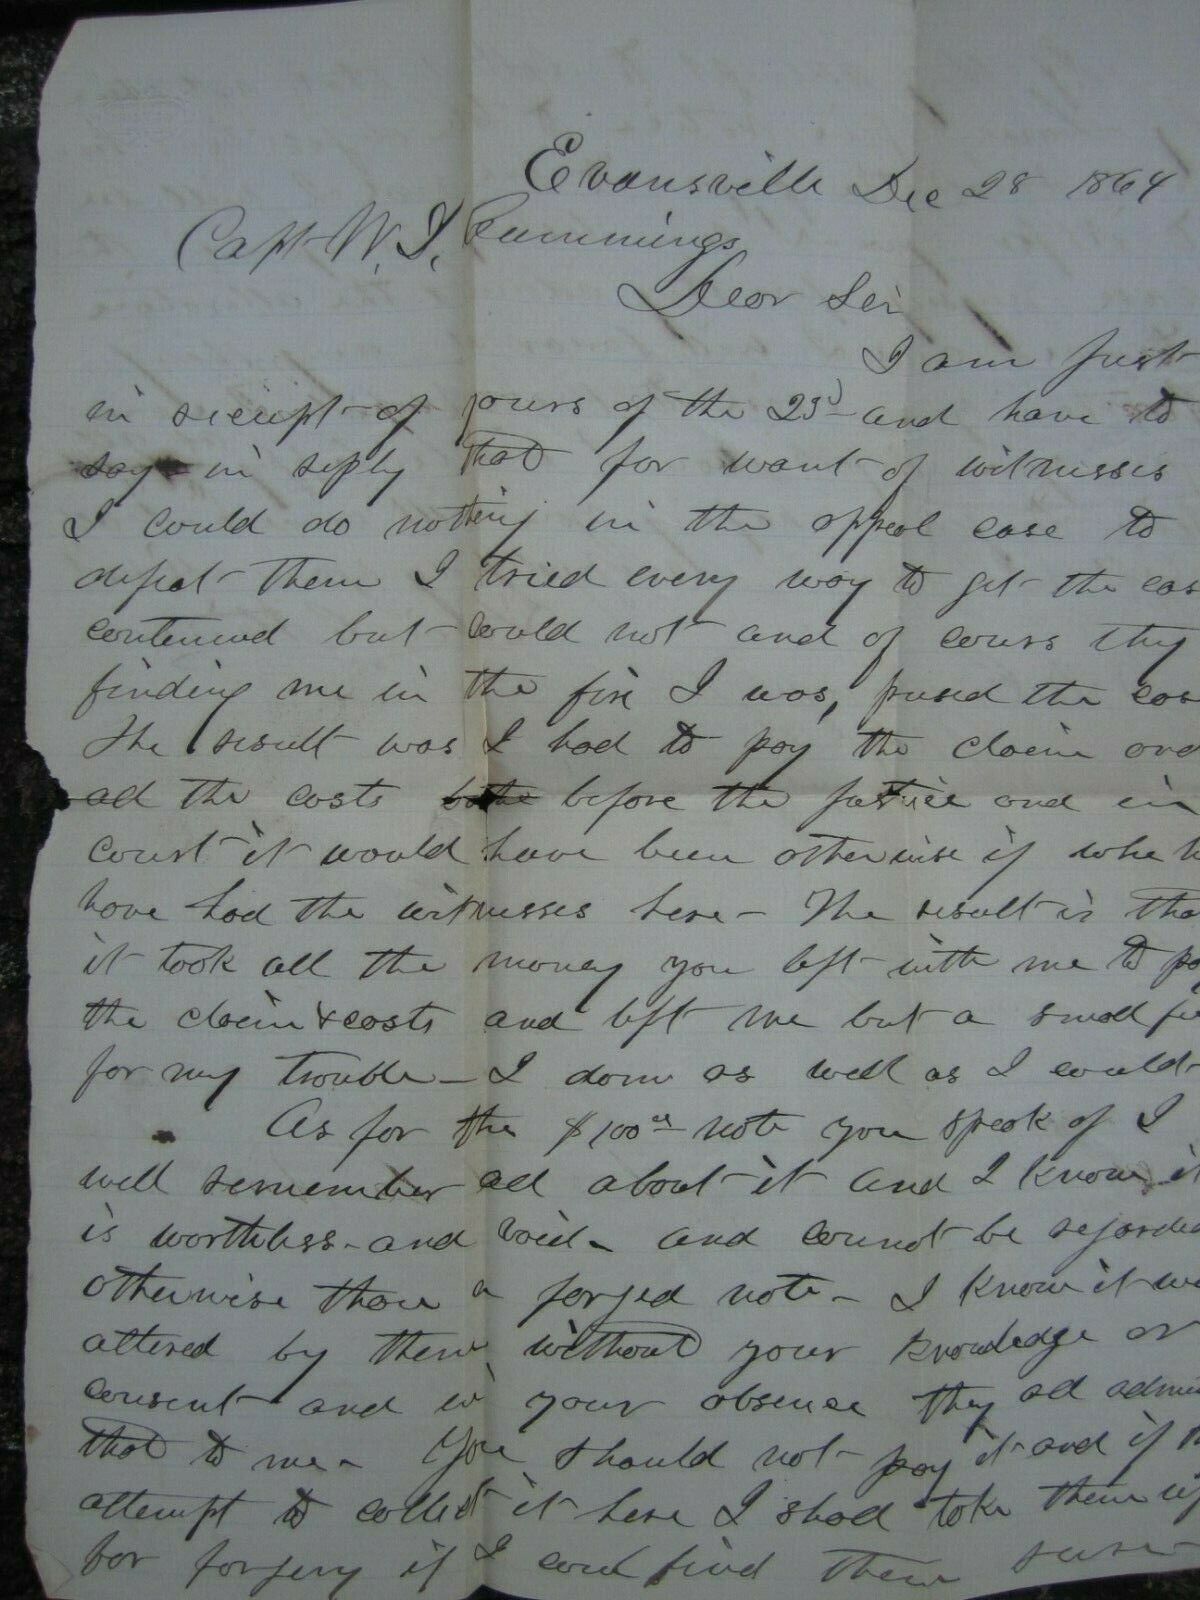 Evansville Dec 28 1864
Capt W. I. Cummings
Dear Sir
I am just
in receipt of yours of the 23d and have to
say in reply that for want of witnesses
I could do nothing in the appeal case to
defeat them I tried every way to get the cas
contenued but could not and of cours they
finding me in the fix I was, prused the cas
The result was I had to pay the claim and
all the costs before the justice and in
court it would have been otherwise if
have had the witnesses here - The result is tha
it took all the money you left with me to pay
the claim & costs and left me but a small fee
for my trouble - I done as well as I could -
As for the $100 note you speak of I
well remember all about it and I know it
is worthless - and void - and connot be regarded
otherwise than a forged note - I know it wa
altered by them without your knowledge or
consent and in your absence they all admi
that to me - You should not pay it and if th
attempt to collect it here I shal take them up
for forgery if I could find them sure -